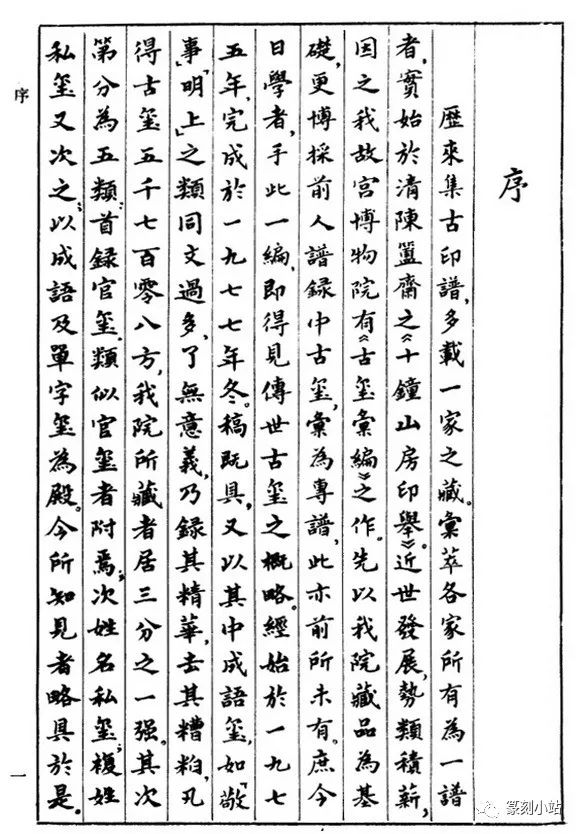 序
歷來集古印譜，多載一家之藏。彙萃各家所有為一譜
者，實始於清陳簠齋之《十鐘山房印舉》。近世發展，勢類積薪，
因之我故宮博物院有《古璽彙編》之作。先以我院藏品為基
礎，更博採前人譜録中古璽，彙為專譜，此亦前所未有。庶今
日學者，手此一編，即得見傳世古璽之概略。經始於一九七
五年，完成於一九七七年冬。稿既具，又以其中成語璽，如「敬
事」「明上」之類同文過多，了無意義，乃録其精華，去其糟粕，凡
得古璽五千七百零八方，我院所藏者居三分之一强。其次
第分為五類：首録官璽。類似官璽者附焉；次姓名私璽；複姓
私璽又次之；以成語及單字璽為殿。今所知見者略具於是。
序
一
篆刻小站